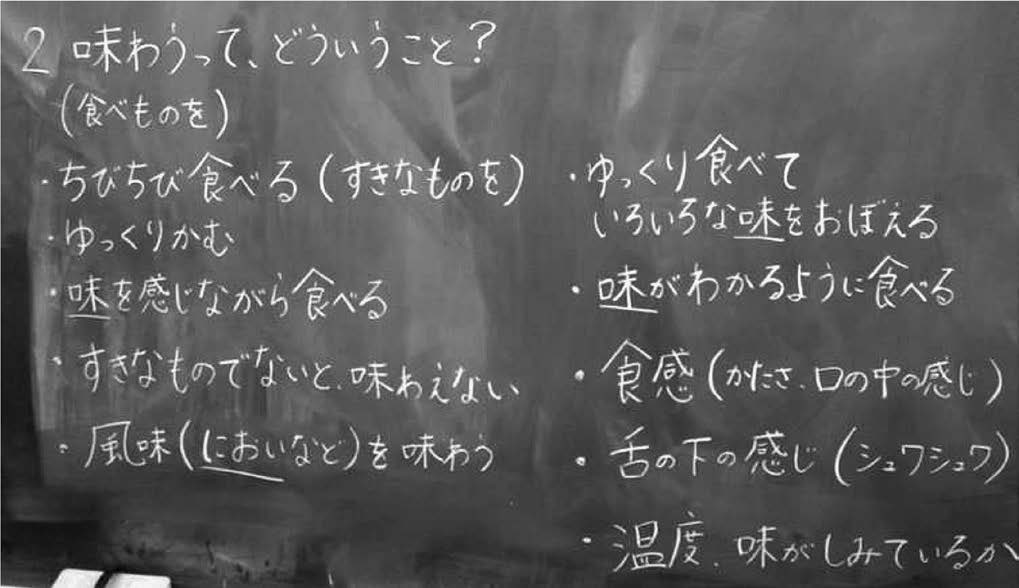 2 味わうって、どういうこと?
(食べものを)
・ちびちび食べる(すきなものを)
・ゆっくりかむ
・味を感じながら食べる
・すきなものでないと、味わえない
・風味(においなど)を味わう
・ゆっくり食べて
いろいろな味をおぼえる
・味がわかるように食べる
・食感(かたさ、口の中の感じ)
・舌の下の感じ(シュワシュワ)
・温度、味がしみているか